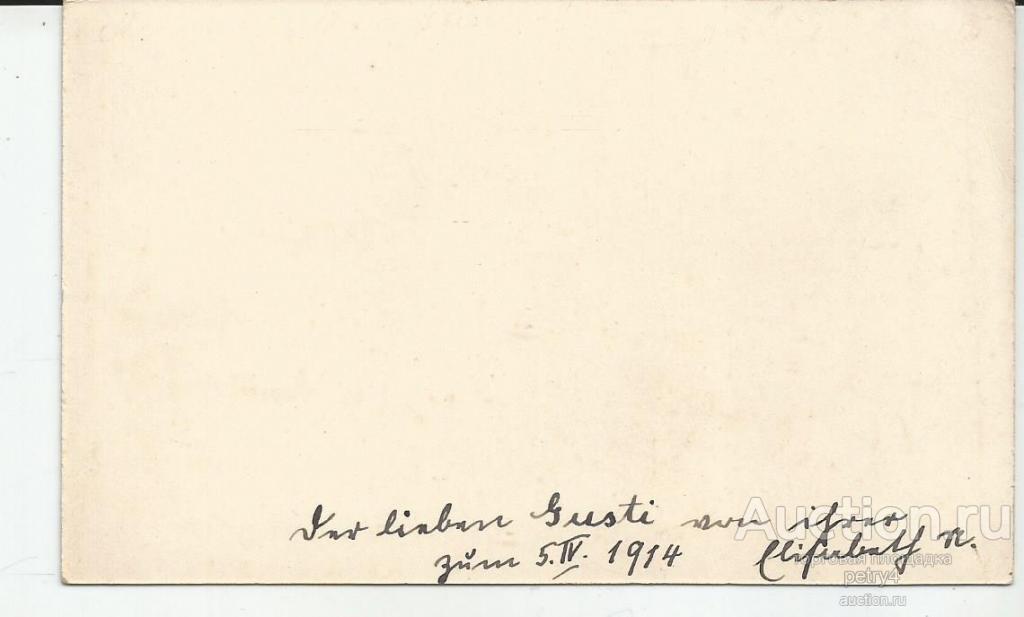 Der lieben Gusti von ihrer
zum 5.IV. 1914 Elisabeth R.
Auction.ru
торговая площадка
petry4
auction.ru